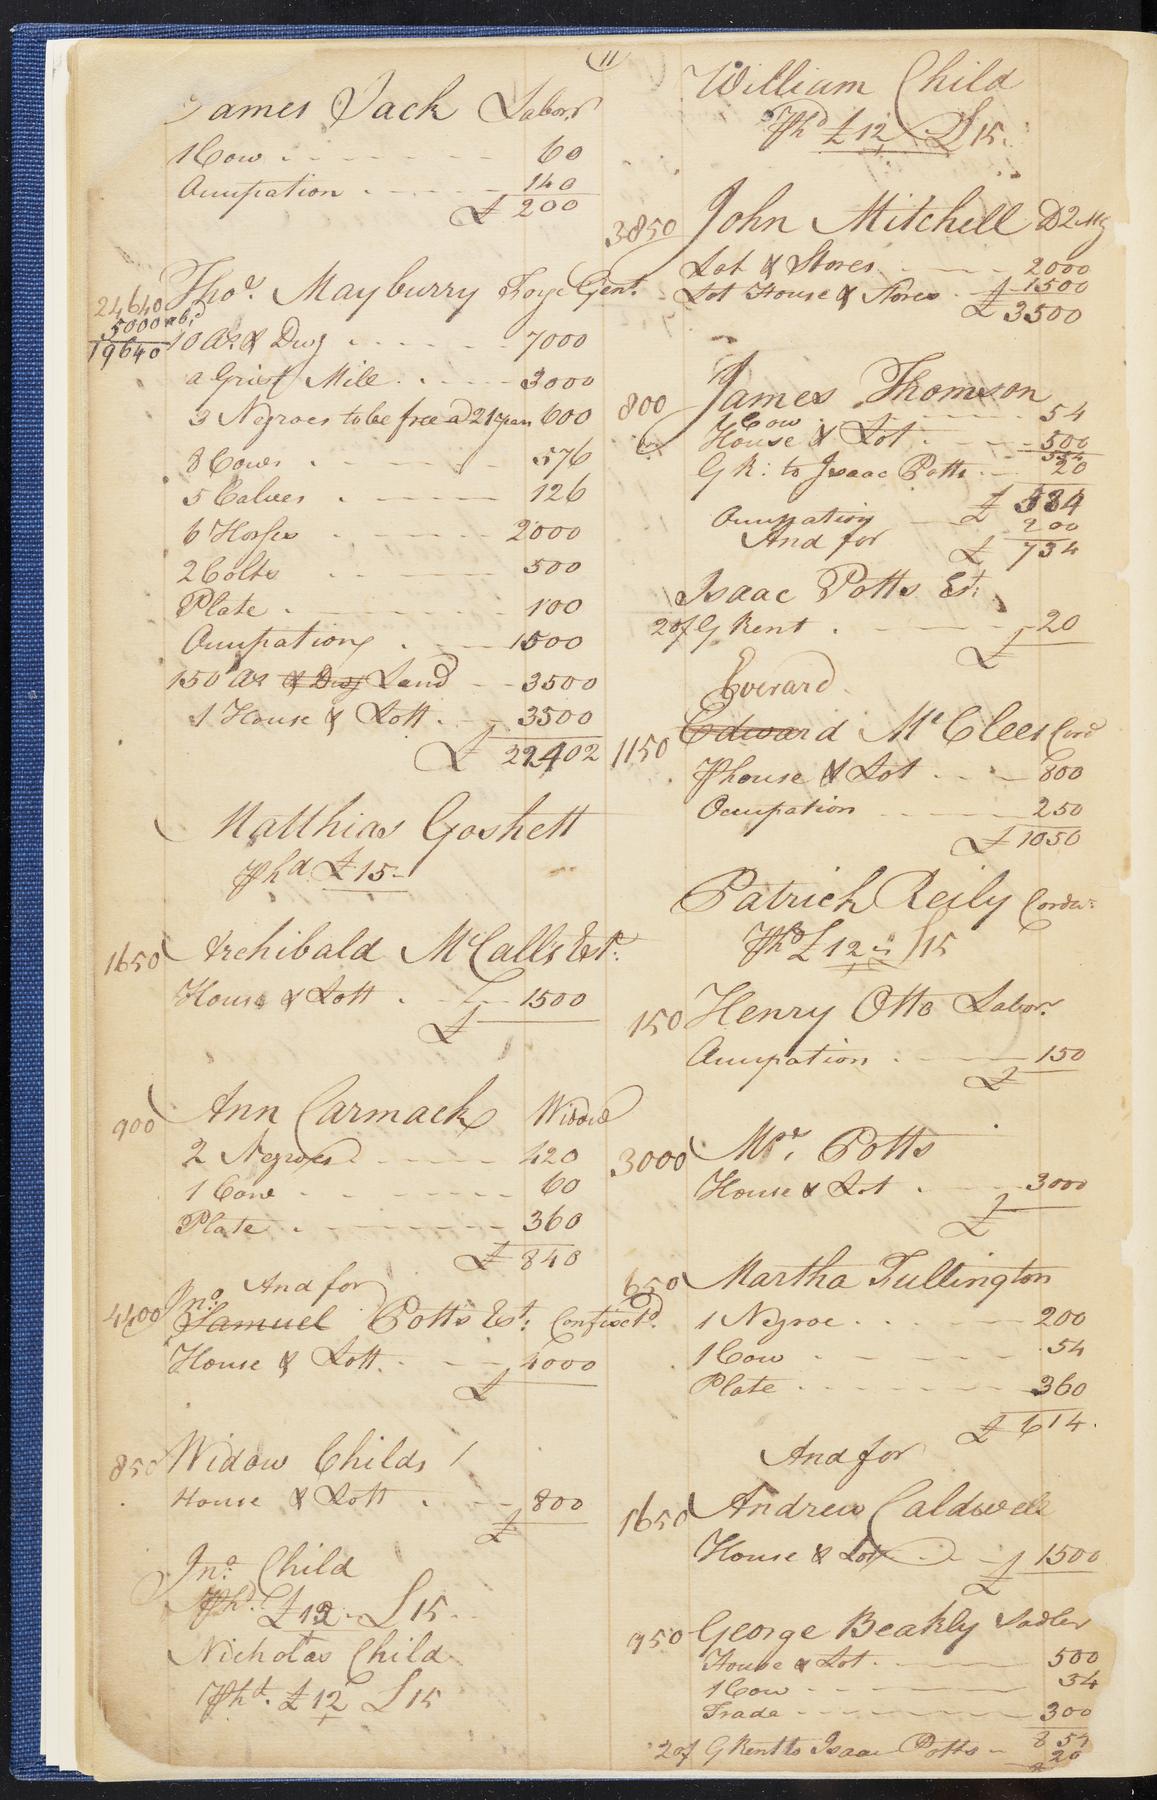 11
James Jack Labor.r
1 Cow 60
Occupation 140
£ 200
24640
5000 ab.d
19640
Tho.s Mayburry Forge Gent.
10 As. & Dwg 7000
a Grist Mill 3000
3 Negroes to be free a 21 years 600
8 Cows 576
5 Calves 126
6 Horses 2000
2 Colts 500
Plate 100
Occupation 1500
150 As & Dwg Land 3500
1 House & Lott 3500
£ 22402
Matthias Goshett
Pr hd £ 15
1650 Archibald McCall's Est.
House & Lott 1500
£
900 Ann Carmack Widow
2 Negroes 420
1 Cow 60
Plate 360
£ 840
And for
4400 Jno. Samuel Potts Est: Confisctd.
House & Lott 4000
£
850 Widow Childs 1
House & Lott 800
£
Jno. Child
Pr hd. £ 12 £ 15
Nicholas Child
Pr hd. £ 12 £ 15
William Child
Pr hd £ 12 £ 15
3850 John Mitchell
Lot & Stores 2000
Lot House & Stores 1500
£ 3500
800 James Thomson
Cow 54
House & Lot 500
554
G R: to Isaac Potts 20
£ 534
Occupation 200
And for £ 734
Isaac Potts Est:
2 of G Rent 20
£
Everard
1150 Edward McClees Cord
House & Lot 800
Occupation 250
£ 1050
Patrick Reily Cordw:
Pr hd £ 12 £ 15
150 Henry Otto Labor.
Occupation 150
£
3000 Potts
House & Lot 3000
£
650 Martha Tullington
1 Negroe 200
1 Cow 54
Plate 360
£ 614.
And for
1650 Andrew Caldwell
House & Lot 1500
£
950 George Beakly Sadler
House & Lot 500
1 Cow 54
Trade 300
854
2 of G Rent to Isaac Potts 20